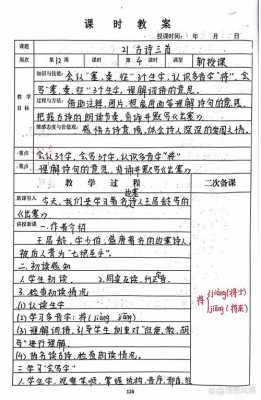 课时教案
授课时间： 年 月 日
课题 21 古诗三首
周次 第12周 课时 第4课时 课型 新授课
教学目标
知识与技能：会认"塞、秦"等3个生字，认识多音字"将"，会
写"塞、秦、征"等3个生字，理解词语的意思。
过程与方法：借助注释、图片，想象画面等理解诗句的意思，
把握古诗的朗读节奏，背诵并默写《出塞》
情感态度与价值观：感悟古诗意境，体会诗人深深的爱国之情。
重点 会认3个字，会写3个字，认识多音字"将"
难点 理解诗句的意思，背诵并默写《出塞》
教学过程 二次备课
新课导入 今天，我们要学习著名诗人王昌龄写的
《出塞》
讲授新课 一、作者介绍
王昌龄，字少伯，盛唐著名的边塞诗人，
被后人誉为"七绝圣手"。
二、初读感知
1.学生初读 2.同桌互读，纠正
3.检查初读情况
(1)认读生字
(2)学习多音字：将(jiāng jiàng)
(3)理解词语，引导学生
进行理解。
(4)指名读古诗，检查朗读情况。
三、学习"会写字"
1.学生字，观察笔顺，掌握结构，音序，部首
将 jiàng(将士)
jiāng(将来)